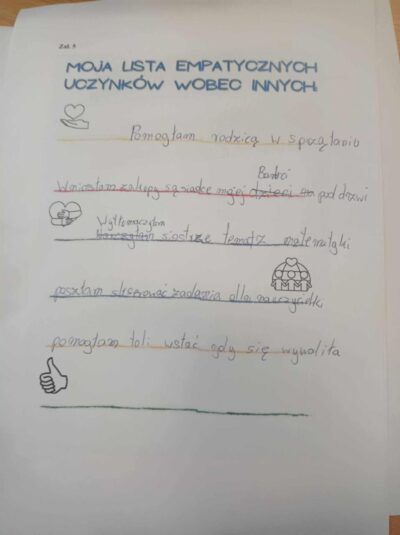 Zał. 5
MOJA LISTA EMPATYCZNYCH
UCZYNKÓW WOBEC INNYCH:
Pomogłam rodzicą w sprzątaniu
Banbci
Wniosłam zakupy sąsiadce mojej dzieci na pod drzwi
Wytłomaczyłam
siostrze temat z matematyki
poszłam skserować zadania dla nauczycielki
pomogłam toli wstać gdy się wywaliła